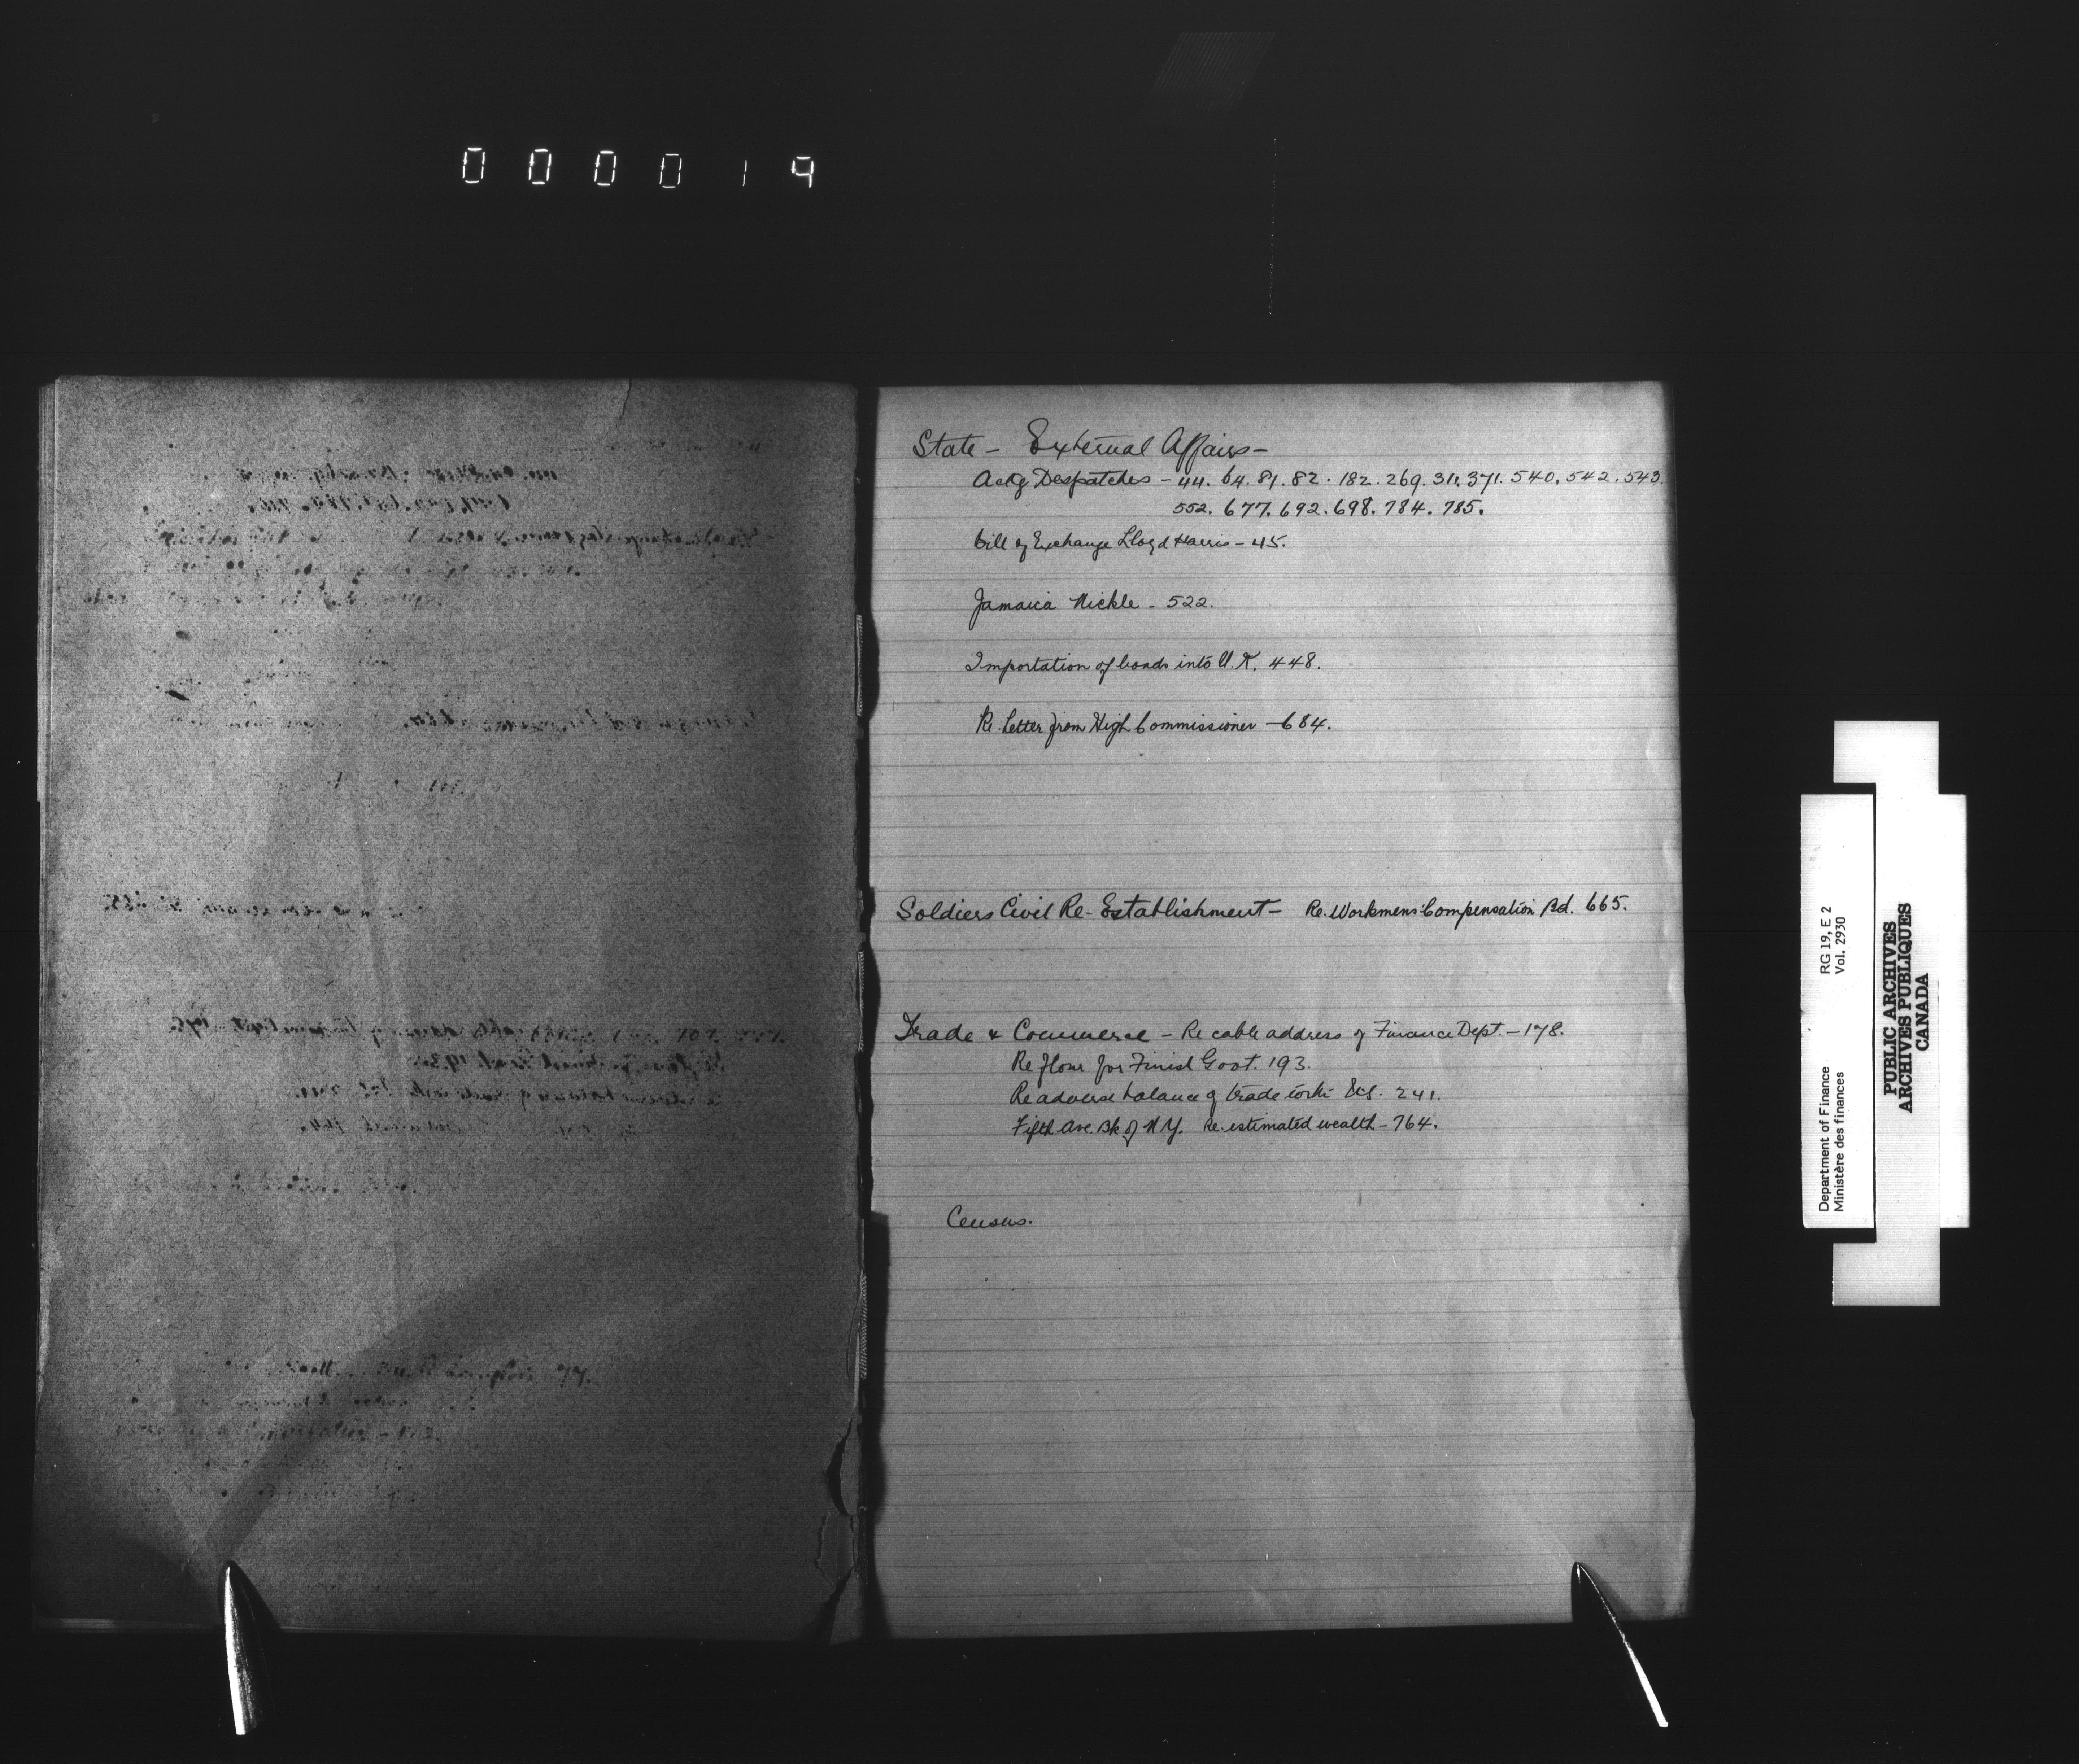 000019
State - External Affairs -
Ackg Despatches - 44. 64. 81. 82. 182. 269. 311. 371. 540. 542. 543.
552. 677. 692. 698. 784. 785.
Bill of Exchange Lloyd Harris - 45.
Jamaica Nickle - 522.
Importation of bonds into U.K. 448.
Re Letter from High Commissioner - 684.
Soldiers Civil Re-Establishment - Re. Workmens Compensation Bd. 665.
Trade & Commerce - Re cable address of Finance Dept. - 178.
Re flour for Finish Govt. 193.
Re adverse balance of trade 241.
Fifth Ave. Bk of N.Y. Re. estimated wealth - 764.
Census.
Department of Finance RG 19, E 2
Ministère des finances Vol. 2930
PUBLIC ARCHIVES
ARCHIVES PUBLIQUES
CANADA